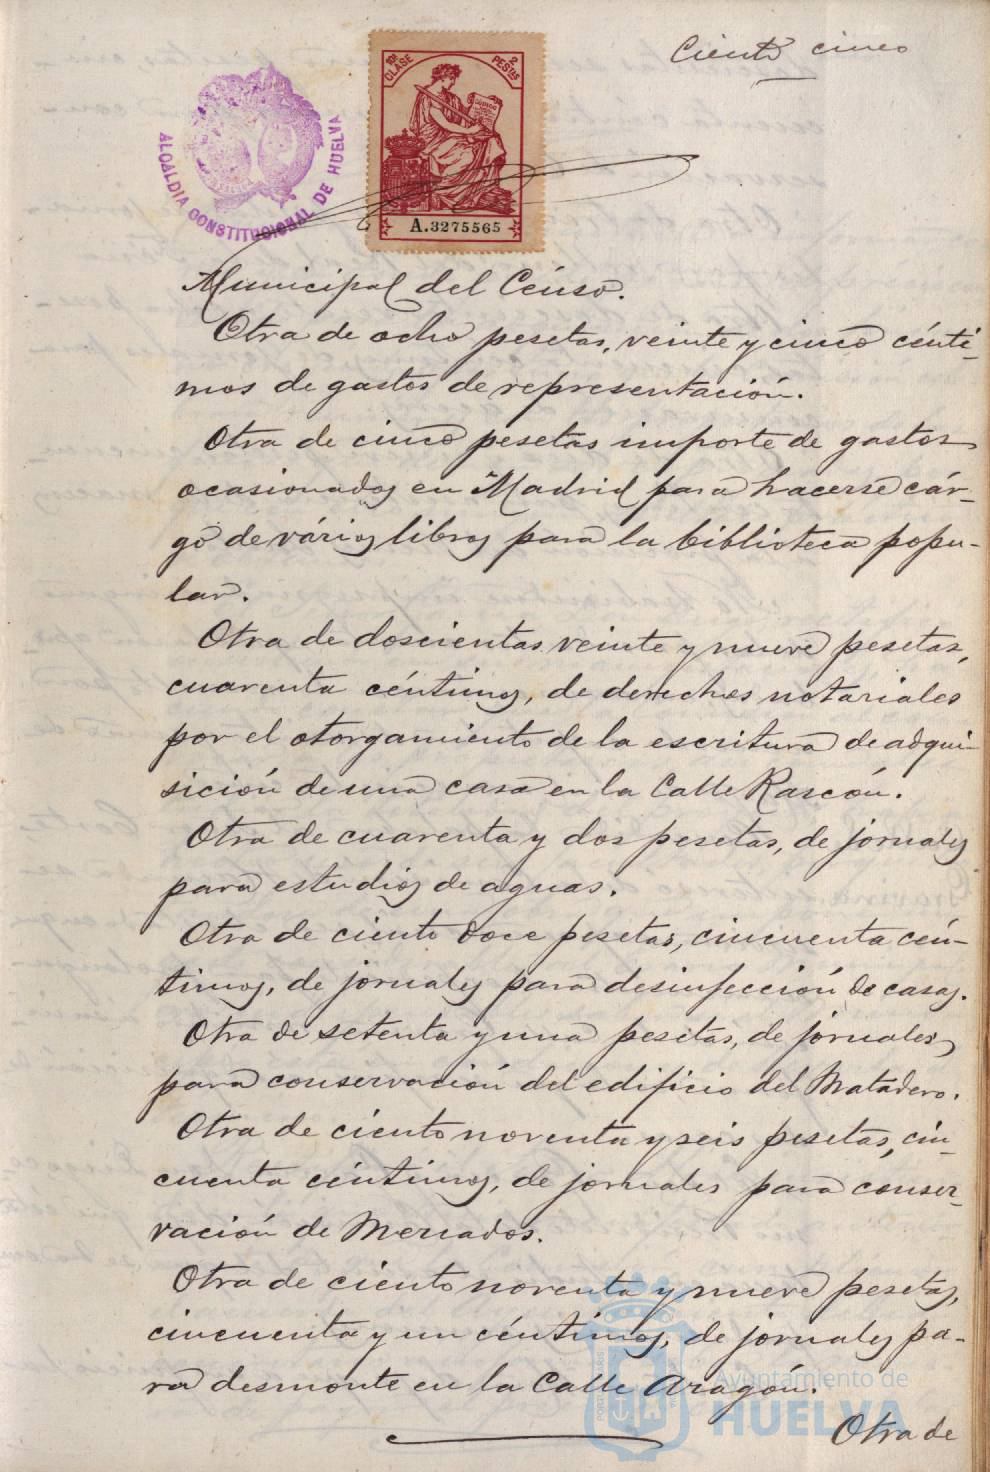 Ciento cinco
ALCALDIA CONSTITUCIONAL DE HUELVA
10ª CLASE
2 PESETAS
A.3275565
Municipal del Cénso.
Otra de ocho pesetas, veinte y cinco cénti-
mos de gastos de representación.
Otra de cinco pesetas importe de gastos
ocasionados en Madrid para hacerse cár-
go de vários libros para la biblioteca popu-
lar.
Otra de doscientas veinte y nueve pesetas,
cuarenta céntimos, de derechos notariales
por el otorgamiento de la escritura de adqui-
sición de una casa en la Calle Rascón.
Otra de cuarenta y dos pesetas, de jornales
para estudios de aguas.
Otra de ciento doce pesetas, cincuenta cén-
timos, de jornales para desinfección de casas.
Otra de setenta y una pesetas, de jornales,
para conservación del edificio del Matadero.
Otra de ciento noventa y seis pesetas, cin-
cuenta céntimos, de jornales para conser-
vación de Mercados.
Otra de ciento noventa y nueve pesetas,
cincuenta y un céntimos, de jornales pa-
ra desmonte en la Calle Aragón.
Ayuntamiento de
HUELVA
Otra de